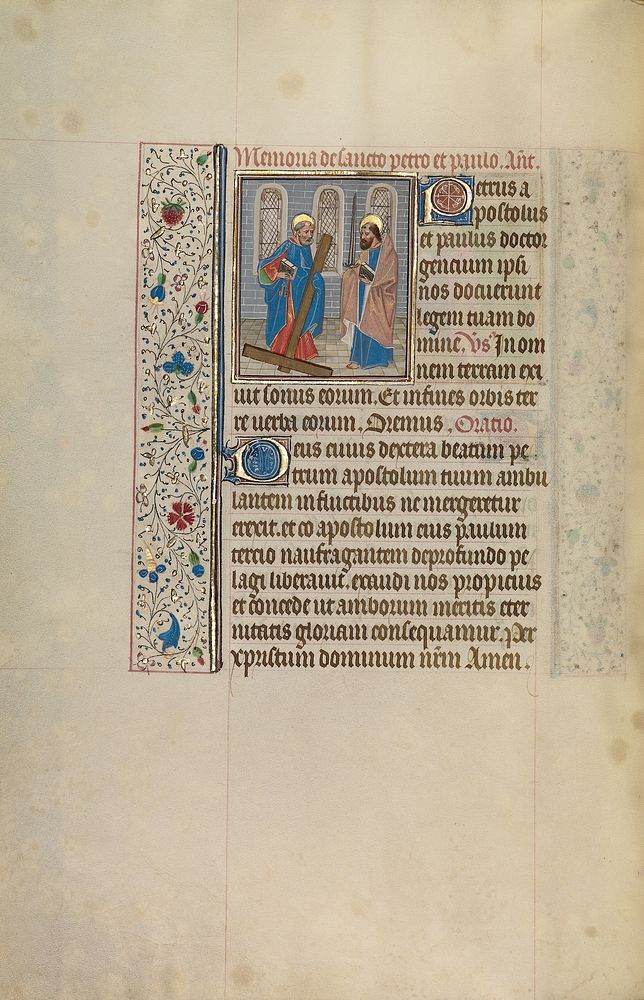 Memoria de sancto petro et paulo. Añt.
Petrus a
postolus
et paulus doctor
gencium ipsi
nos docuerunt
legem tuam do
mine. Vs̃ In om
nem terram exi
uit sonus eorum. Et in fines orbis ter
re uerba eorum. Oremus. Oratio.
Deus cuius dextera beatum pe
trum apostolum tuum ambu
lantem in fluctibus ne mergeretur
erexit. et co apostolum eius paulum
tercio naufragantem de profundo pe
lagi liberauit. exaudi nos propicius
et concede ut amborum meritis eter
nitatis gloriam consequamur. Per
xpristum dominum nr̃m Amen.